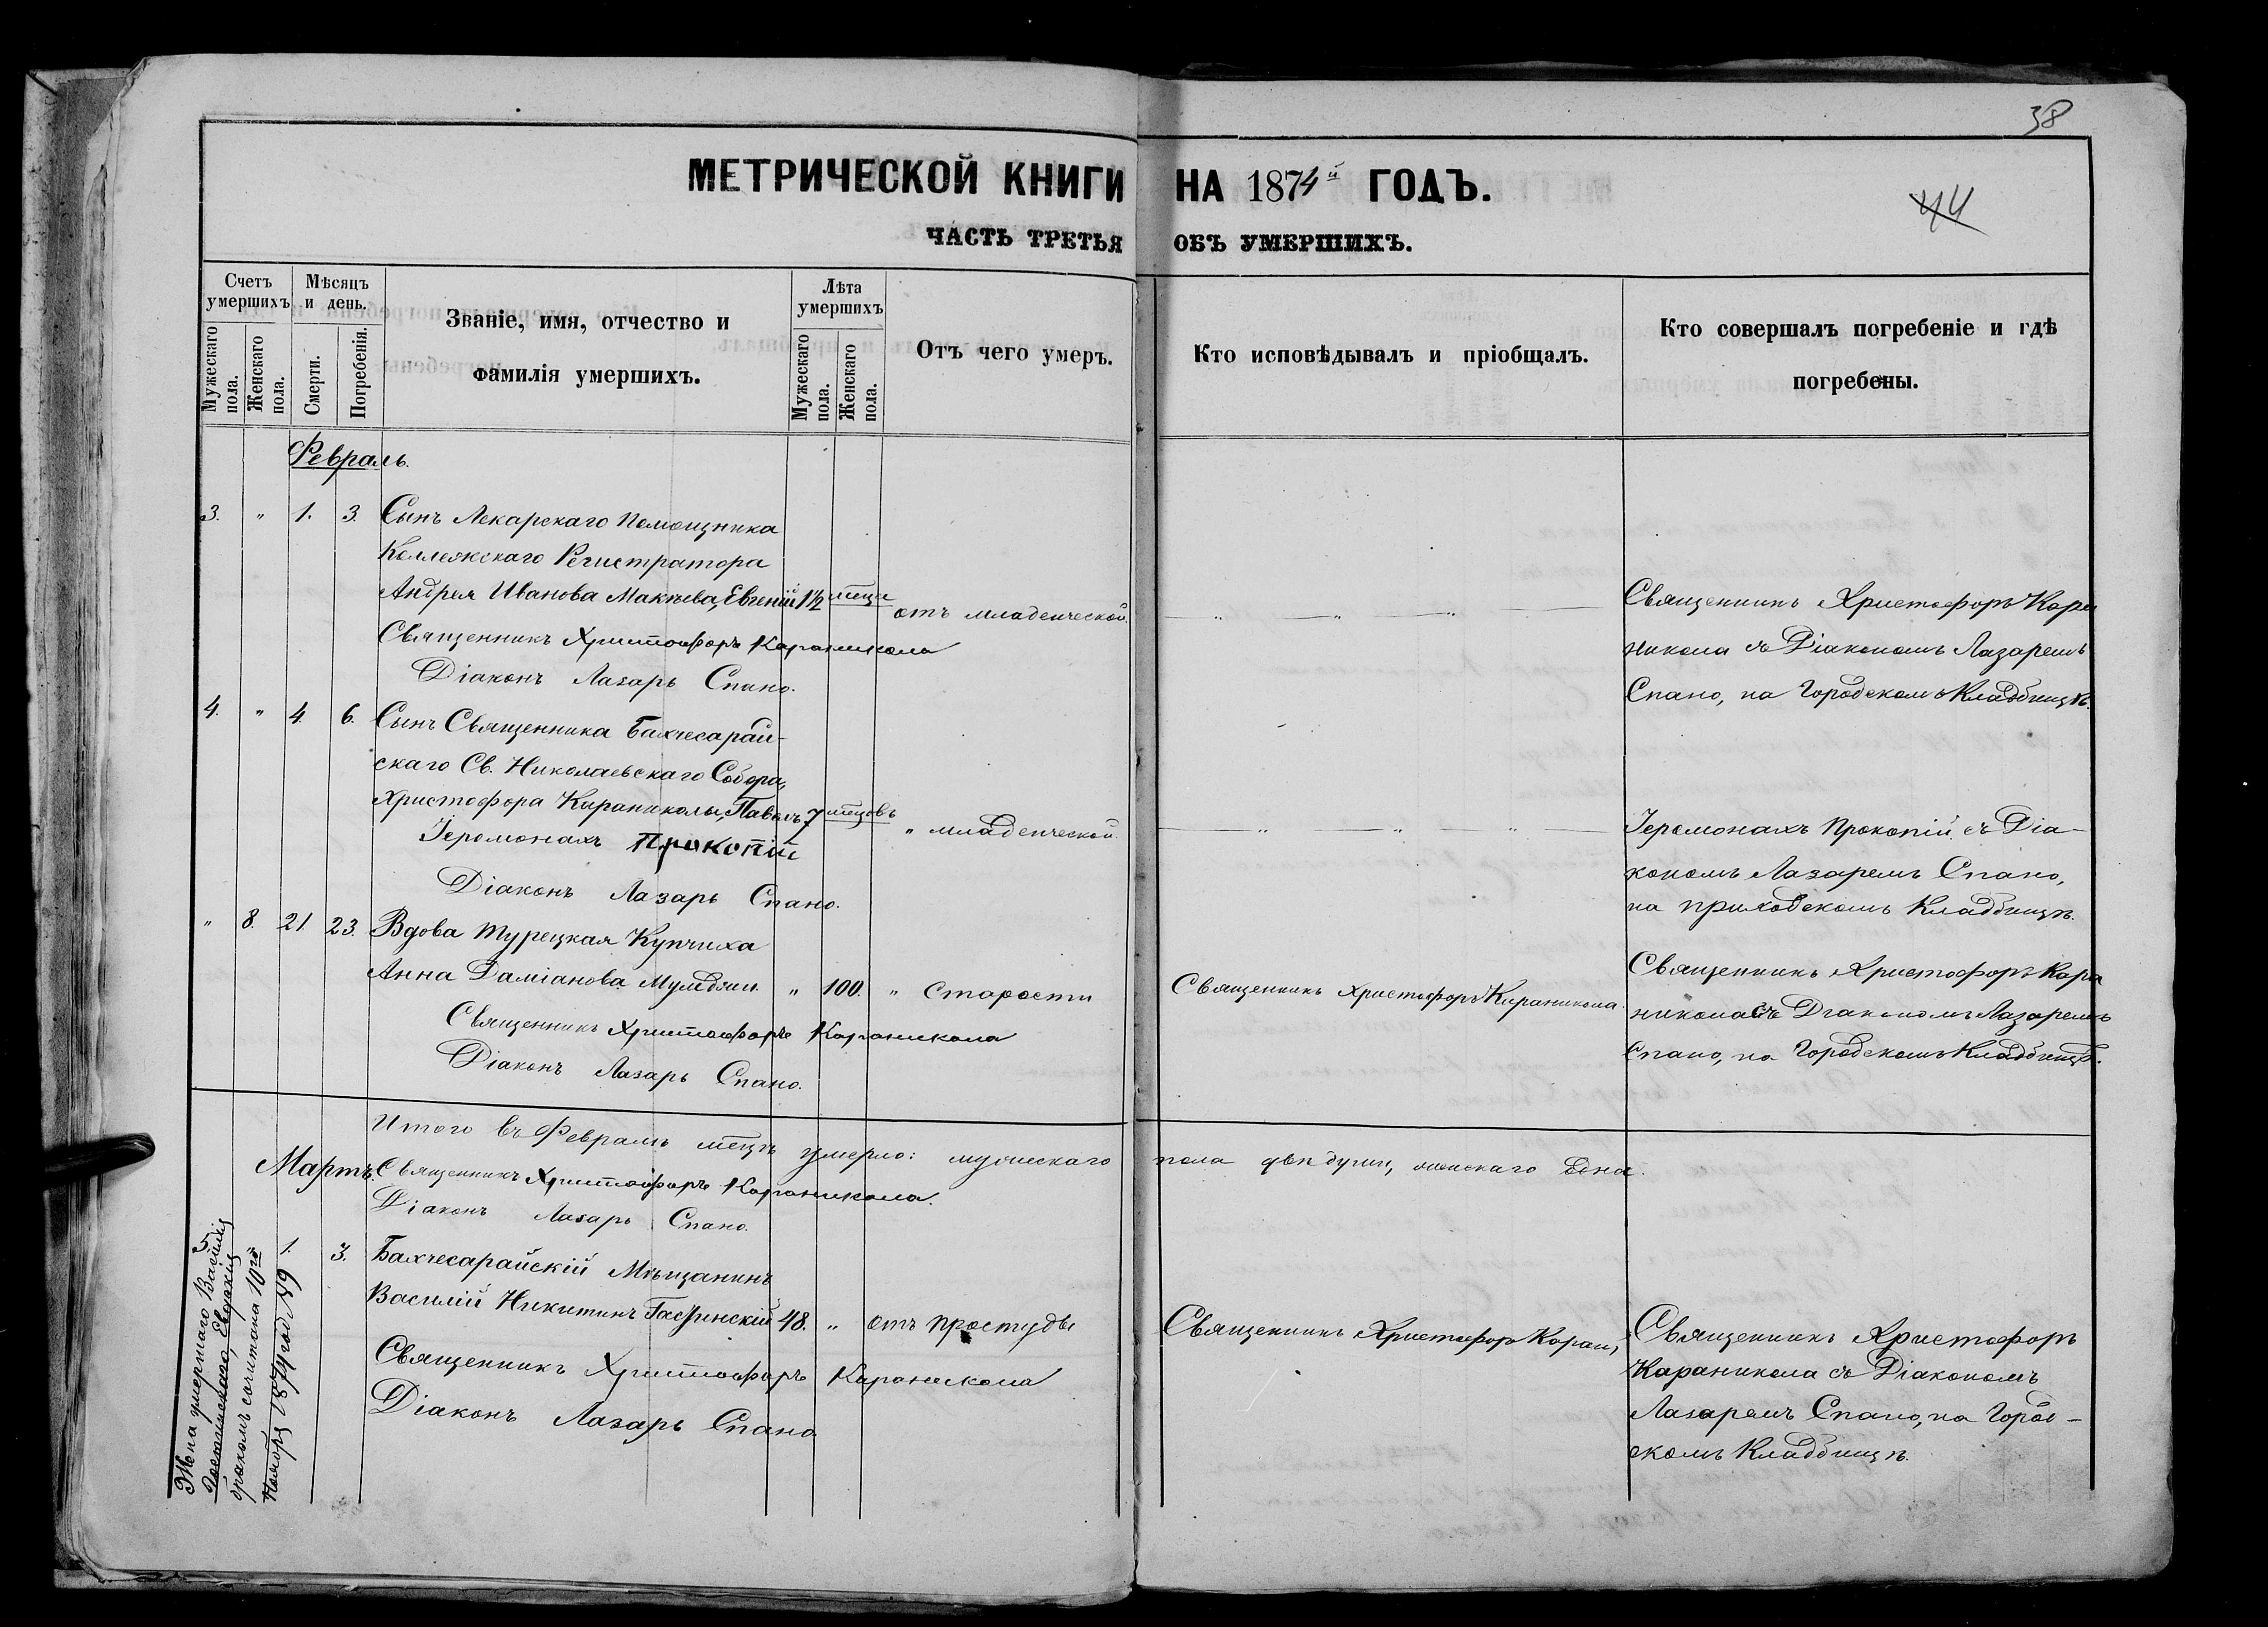 38
МЕТРИЧЕСКОЙ КНИГИ НА 1874й ГОДЪ.
44
ЧАСТЬ ТРЕТЬЯ ОБЪ УМЕРШИХЪ.
Счетъ умершихъ
Мужескаго пола.
Женскаго пола.
Мѣсяцъ и день.
Смерти.
Погребенія.
Званіе, имя, отчество и
фамилія умершихъ.
Лѣта умершихъ
Мужескаго пола.
Женскаго пола.
Отъ чего умеръ.
Кто исповѣдывалъ и пріобщалъ.
Кто совершалъ погребеніе и гдѣ
погребены.
Февраль.
3. " 1. 3. Сынъ Лекарскаго Помощника
Коллежскаго Регистратора
Андрея Иванова Макѣева, Евгеній 1½ мѣца отъ младенческой.
Священникъ Христофоръ Караникола
Діаконъ Лазарь Спано.
Священникъ Христофоръ Кара
никола съ Діакономъ Лазаремъ
Спано, на Городскомъ Кладбищѣ.
4. " 4. 6. Сынъ Священника Бахчесарай-
скаго Св. Николаевскаго Собора,
Христофора Караниколы, Павелъ 7 мѣцовъ " младенческой.
Іеромонахъ Прокопій
Діаконъ Лазарь Спано.
Іеромонахъ Прокопій съ Діа-
кономъ Лазаремъ Спано,
на приходскомъ Кладбищѣ.
" 8. 21. 23. Вдова Турецкая Купчиха
Анна Даміанова " 100. " Старости
Священникъ Христофоръ Караникола
Діаконъ Лазарь Спано.
Священникъ Христофоръ Караникола.
Священникъ Христофоръ Кара
никола съ Діакономъ Лазаремъ
Спано, на Городскомъ Кладбищѣ.
Итого въ Февралѣ мѣцѣ умерло: мужескаго пола двѣ души, женскаго одна.
Мартъ.
Священникъ Христофоръ Караникола.
Діаконъ Лазарь Спано.
5. 1. 3. Бахчесарайскій Мѣщанинъ
Василій Никитинъ 48. " отъ простуды
Священникъ Христофоръ Караникола
Діаконъ Лазарь Спано
Священникъ Христофоръ Каран,
Священникъ Христофоръ
Караникола съ Діакономъ
Лазаремъ Спано, на Город-
скомъ Кладбищѣ.
Жена умершаго Василія
Евдокія
бракомъ сочитана 10го
Ноября 1874 год № 9